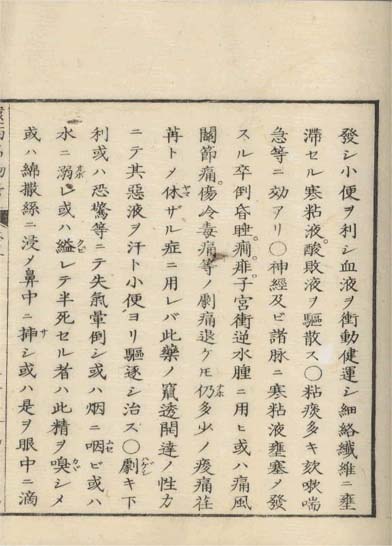 發シ小便ヲ利シ血液ヲ衝動健運シ細絡纖維ニ壅
滯セル寒粘液酸敗液ヲ驅散ス〇粘痰多キ欬嗽喘
急等ニ効アリ〇神經及ビ諸脉ニ寒粘液壅塞メ發
スル卒倒昏睡。癇。痱。子宮衝逆水腫ニ用ヒ或ハ痛風
關節痛。傷冷毒痛等ノ劇痛退ケ𪜈仍多少ノ痠痛荏
苒トメ休ザル症ニ用レバ此藥ノ竄透開達ノ性力
ニテ其惡液ヲ汗ト小便ヨリ驅逐シ治ス〇劇キ下
利或ハ恐驚等ニテ失氣暈倒シ或ハ烟ニ咽ビ或ハ
水ニ溺レ或ハ縊レテ半死セル者ハ此精ヲ嗅シメ
或ハ綿撒絲ニ浸メ鼻中ニ揷シ或ハ是ヲ眼中ニ滴